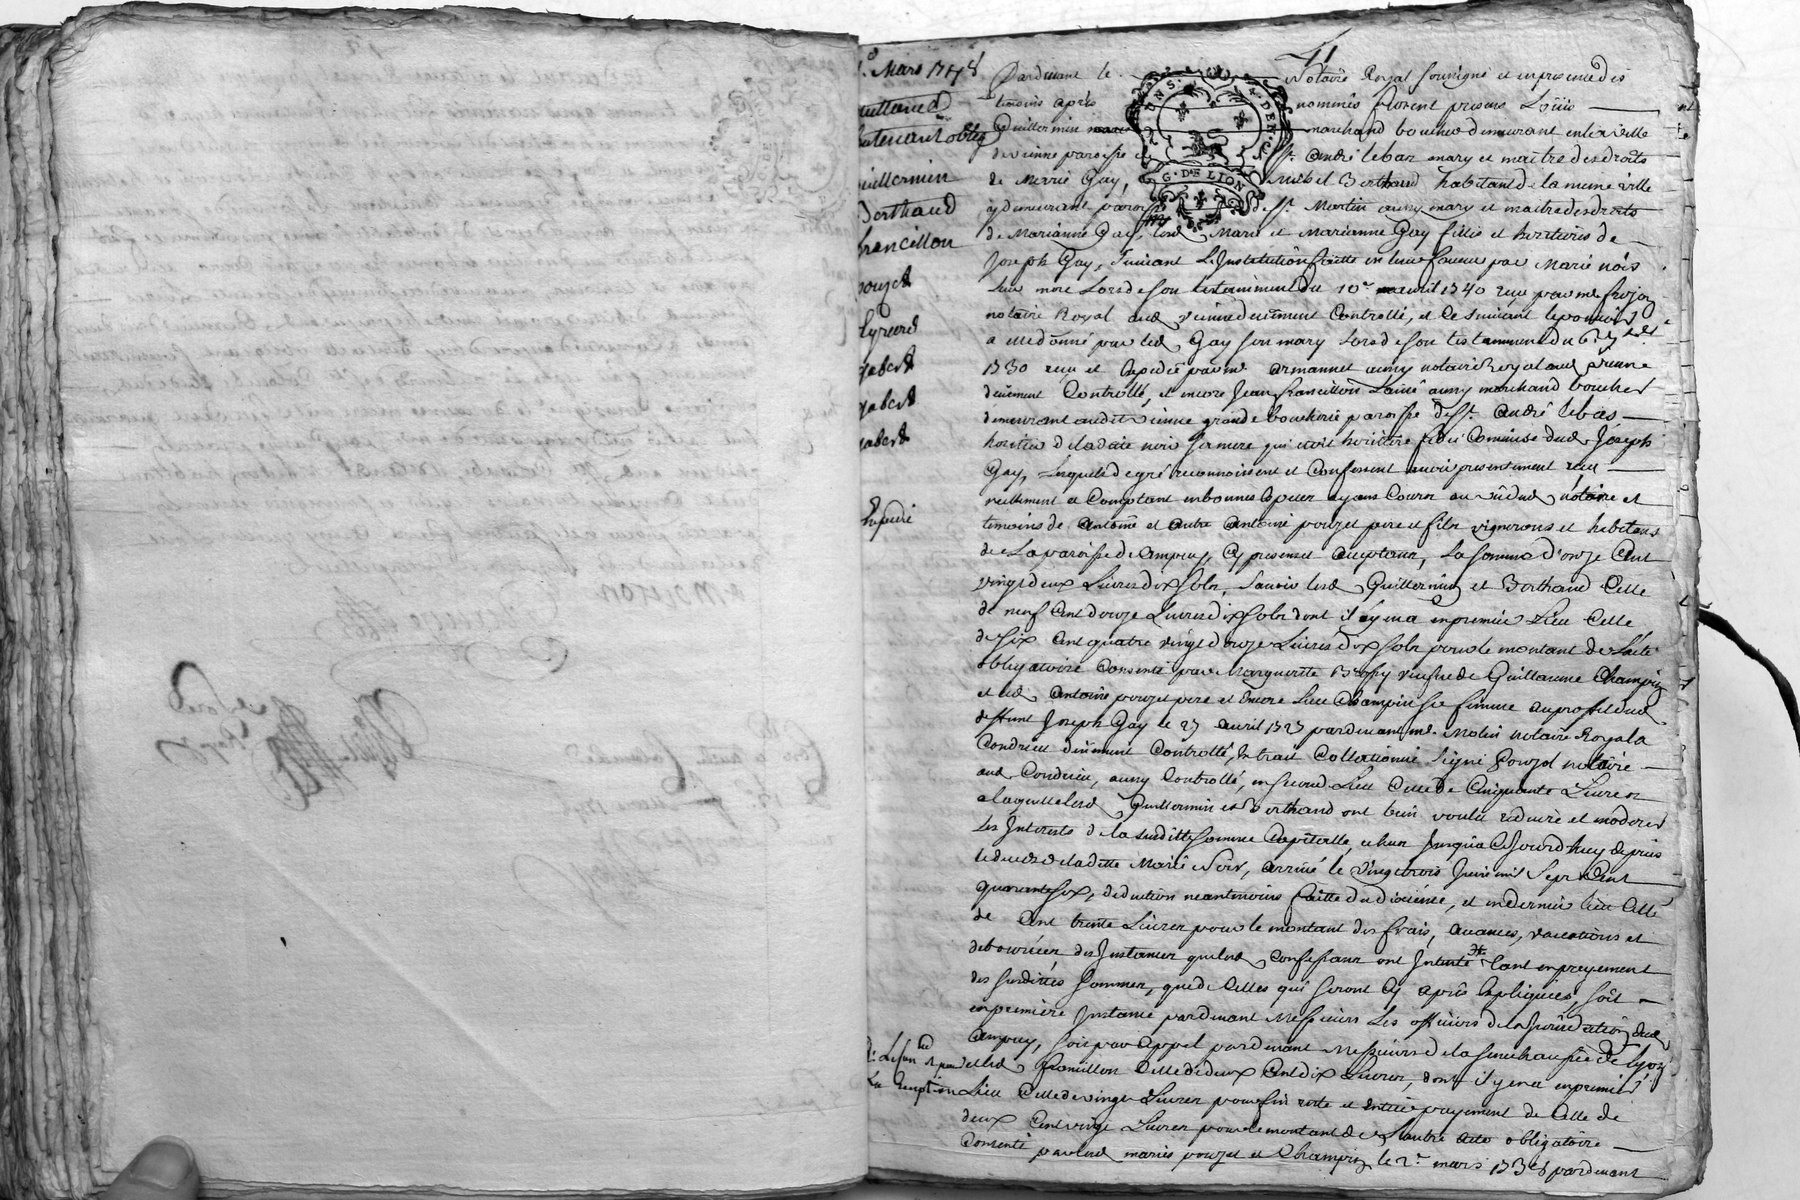 11
Mars 1748
Pardevant le Notaire Royal soussigné et en presence des
temoins après nommés furent presens Loüis
Guillermin marchand boucher demeurant en la ville
de vienne paroisse de St. andré le bas mary et maitre des droits
de Marie Gay, Michel Berthaud habitant de la meme ville
y demeurant paroisse de St. Martin aussy mary et maitre des droits
de Marianne Gay, lesd. Marie et Marianne Gay filles et heritieres de
Joseph Gay, suivant l'Institution faitte en leur faveur par Marie noir
leur mere Lors de son testament du 10e avril 1740 reçu par me
notaire Royal aud. vienne deüement Controllé, et ce suivant le pouvoir
a elle donné par led. Gay son mary Lors de son testament du 6
1730 reçu et Expedié par me. armannet aussy notaire Royal aud. vienne
deüement Controllé, et encore Jean francillon L'ainé aussy marchand boucher
demeurant audit vienne grande boucherie paroisse de St. andré le bas
heritier de ladite noir sa mere qui etoit heritiere fidei Commise dud. Joseph
Gay, Lesquels de gré reconnoissent et Confessent avoir presentement reçu
reellement a Comptant en bonnes Especes ayans Cours au vû dud. notaire et
temoins de antoine et autre antoine pouzet pere et fils vignerons et habitans
de La paroisse d'ampuy, Cy presens et acceptans, La somme d'onze Cent
vingt deux Livres dix sols, Sçavoir lesd. Guillermin et Berthaud Celle
de neuf Cent douze Livres dix sols dont il y en a en premier Lieu Celle
de six Cent quatre vingt douze Livres dix sols pour le montant de L'acte
obligatoire Consenti par Marguerite veufve de Guillaume Champin
et led. antoine pouzet pere et Champin sa femme au profit dud.
deffunt Joseph Gay le 27 avril 1727 pardevant me. Molin notaire Royal a
Condrieu deüement Controllé, Extrait Collationné signé pouzol notaire
aud. Condrieu, aussy Controllé, en second Lieu Celle de Cinquante Livres
a laquelle lesd. Guillermin et Berthaud ont bien voulu reduire et moderer
Les Interets de la susditte somme Capitalle, echus Jusqu'a Ce Jourd'huy depuis
le deceds de ladite Marie Noir, arrivé le vingt trois Juin mil Sept Cent
quarante six, deduction neantmoins faitte du dixieme, et en dernier lieu Celle
de Cent trente Livres pour le montant des frais, avances, vacations et
deboursés des Instances que lesd. Confessans ont Intenté tant en payement
des susdittes sommes, que de Celles qui seront Cy après Expliquées, soit
en premiere Instance pardevant Messieurs Les officiers de la Jurisdiction dud.
ampuy, soit par appel pardevant Messieurs de la senechaussée de Lyon
et led. francillon Celle de deux Cent dix Livres, dont il y en a en premier
Lieu Celle de vingt Livres pour fin reste et entier payement de Celle de
deux Cent vingt Livres pour le montant de L'autre acte obligatoire
Consenti par lesd. mariés pouzet et Champin le 2e. mars pardevant
obligé
Guillermin
Berthaud
francillon
pouzet
gabert
gabert
gabert
Expedié